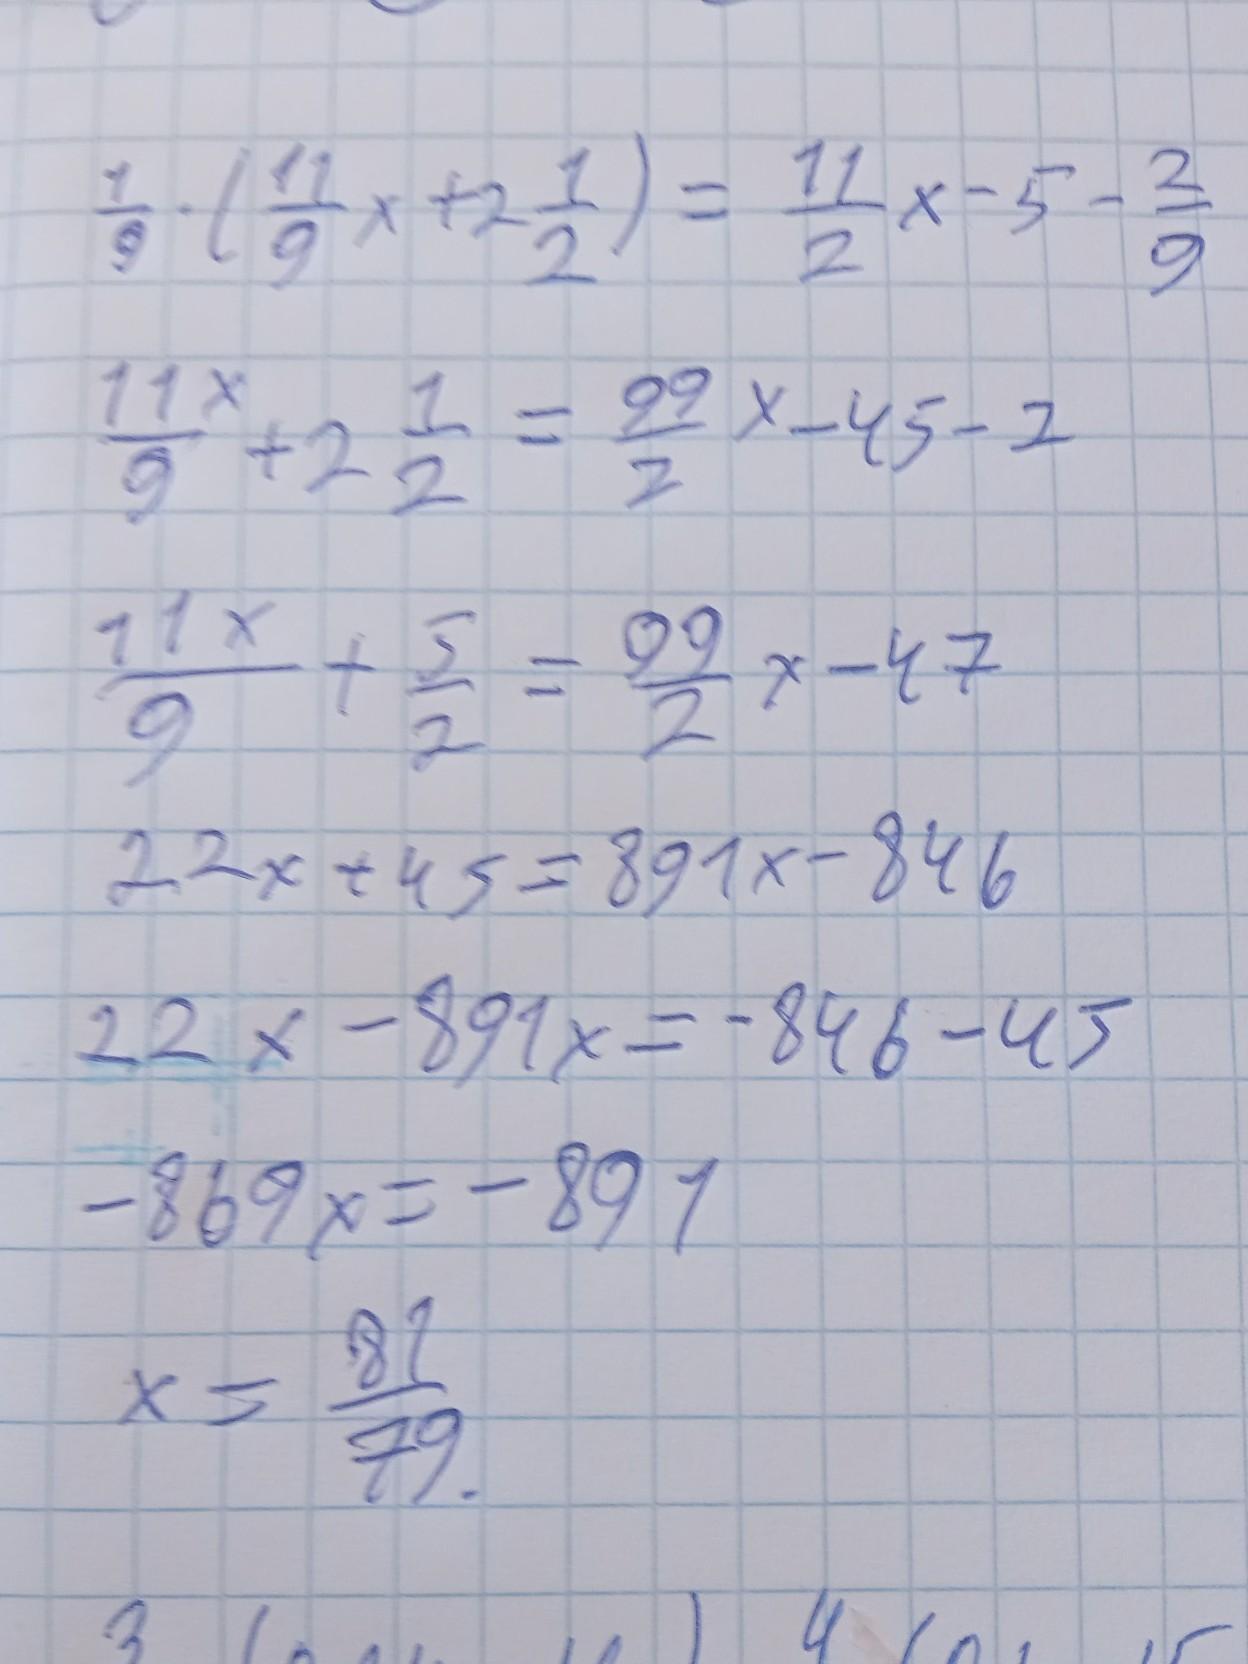 1/9 · (11/9 x + 2 1/2) = 11/2 x - 5 - 2/9
11x/9 + 2 1/2 = 99/2 x - 45 - 2
11x/9 + 5/2 = 99/2 x - 47
22x + 45 = 891x - 846
22x - 891x = -846 - 45
-869x = -891
x = 81/79.